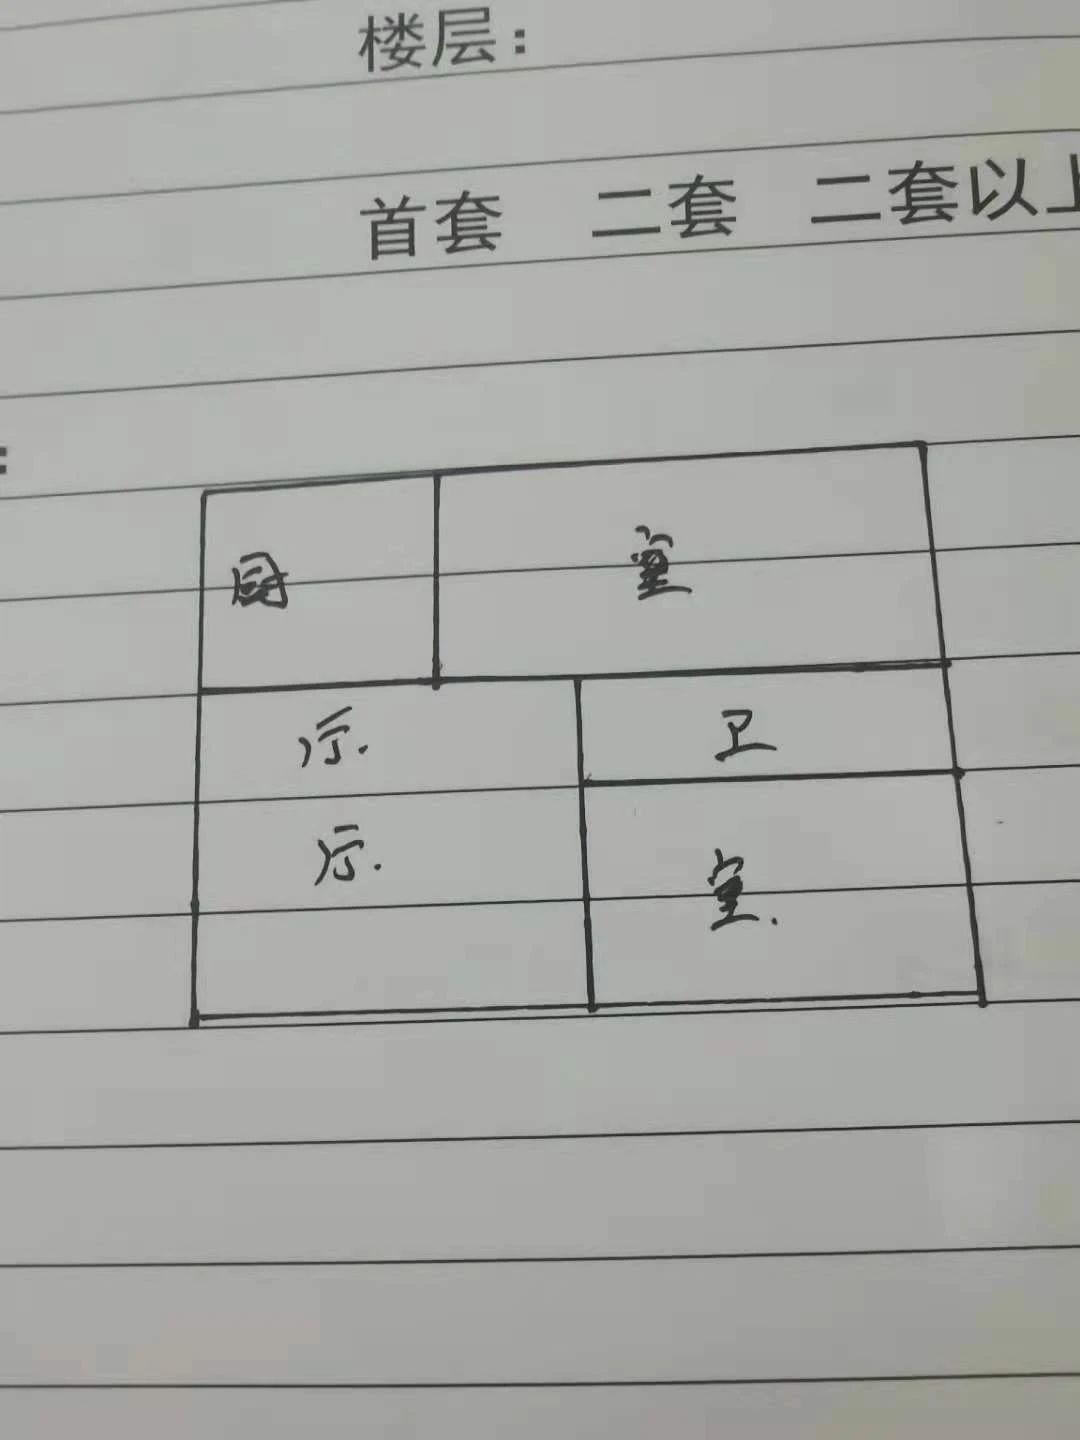 楼层：
首套 二套 二套以上
：
厨 室
厅. 卫
厅. 室.